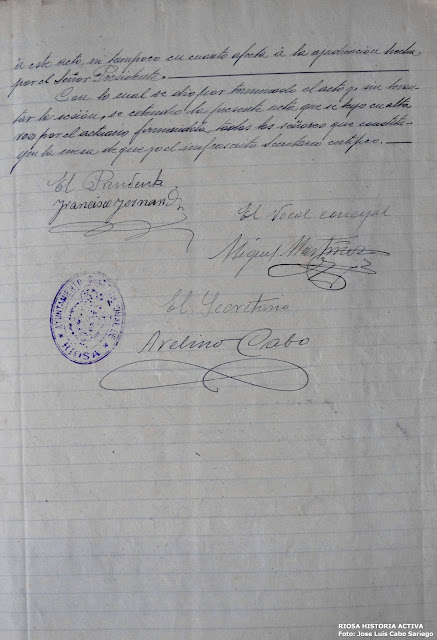 á este acto, ni tampoco en cuanto afecta á la aprobación hecha
por el Señor Presidente.
Con lo cual se dio por terminado el acto y sin levan-
tar la sesión, se extendió la presente acta, que se leyó en alta
voz por el actuario firmandola todos los señores que constitu-
yen la mesa de que yo el infrascrito Secretario certifico.
El Presidente
Francisco Fernandz
El Vocal concejal
Miguel Martinez
El Secretario
Avelino Cabo
AYUNTAMIENTO
RIOSA
RIOSA HISTORIA ACTIVA
Foto: Jose Luis Cabo Sariego